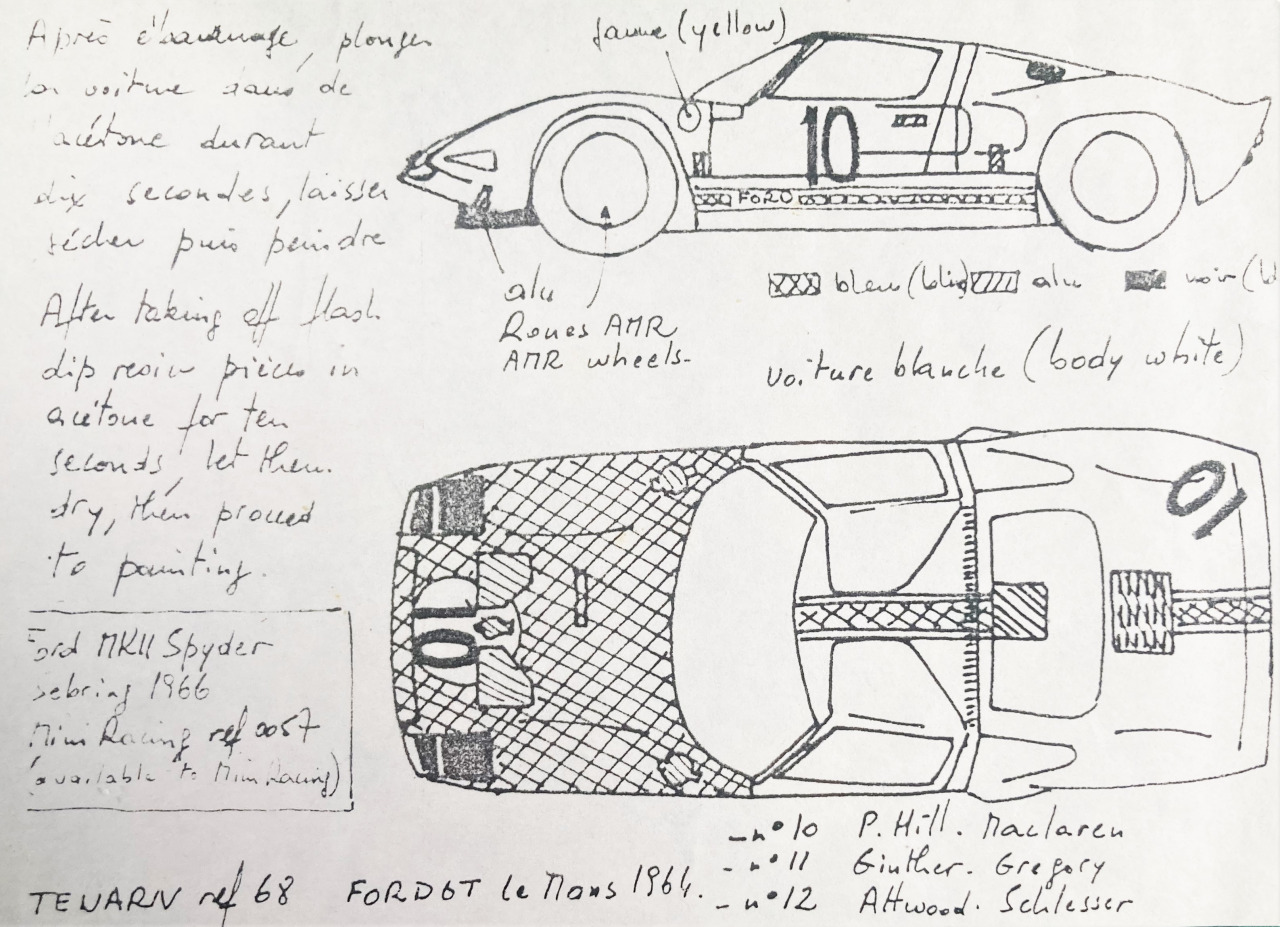 Après ébavurage, plonger
la voiture dans de
l'acétone durant
dix secondes, laisser
sécher puis peindre
After taking off flash
dip resin pièces in
acétone for ten
seconds, let them
dry, then proceed
to painting.
Ford MKII Spyder
Sebring 1966
Mini Racing ref 0057
(available to Mini Racing)
jaune (yellow)
10
FORD
alu
Roues AMR
AMR wheels-
bleu (blue)
alu
noir (b
voiture blanche (body white)
10
10
- n° 10 P. Hill. Maclaren
- n° 11 Ginther. Gregory
- n° 12 Attwood. Schlesser
TENARIV ref 68 FORD GT le Mans 1964.